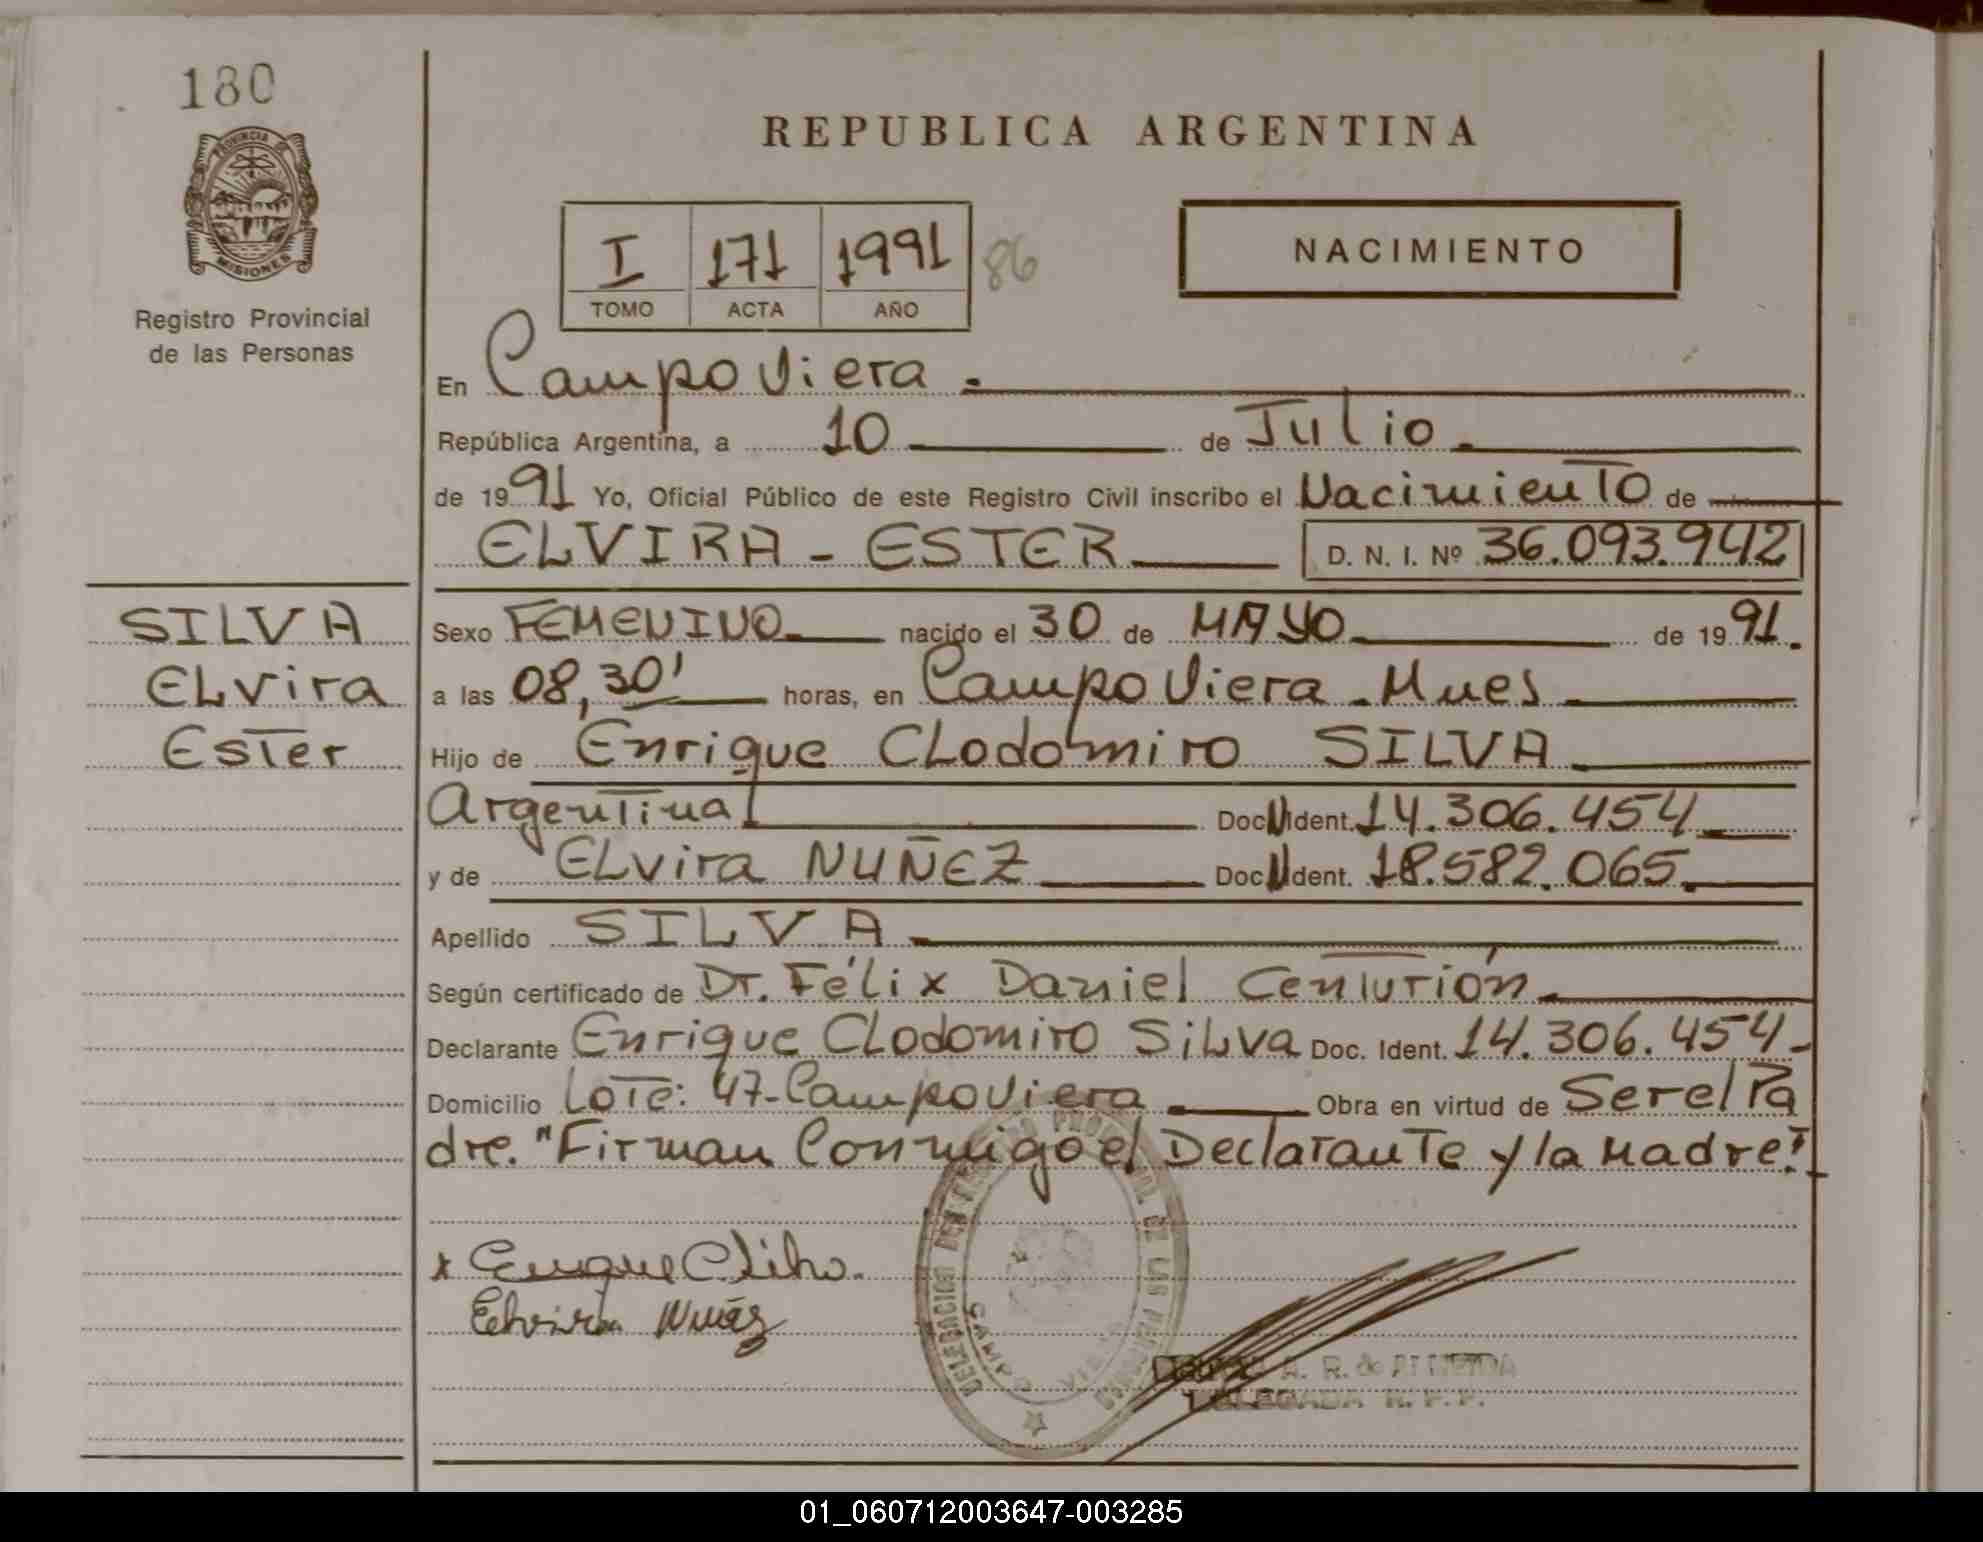 180
PROVINCIA DE
MISIONES
Registro Provincial
de las Personas
REPUBLICA ARGENTINA
I 171 1991 86
TOMO ACTA AÑO
NACIMIENTO
En Campo Viera.
República Argentina, a 10 de Julio.
de 1991 Yo, Oficial Público de este Registro Civil inscribo el Nacimiento de
ELVIRA - ESTER D. N. I. Nº 36.093.942
SILVA
Elvira
Ester
Sexo FEMENINO nacido el 30 de MAYO de 1991.
a las 08,30' horas, en Campo Viera - Mnes
Hijo de Enrique Clodomiro SILVA
Argentina Doc N Ident. 14.306.454
y de Elvira NUÑEZ Doc N Ident. 18.582.065.
Apellido SILVA
Según certificado de Dr. Félix Daniel Centurión.
Declarante Enrique Clodomiro Silva Doc. Ident. 14.306.454-
Domicilio Lote: 47-Campo Viera Obra en virtud de Ser el Pa
dre. "Firman Conmigo el Declarante y la Madre"
x Enrique C. Silva.
Elvira Nuñez
DELEGACION DEL REGISTRO PROVINCIAL DE LAS PERSONAS
CAMPO VIERA
A. R. de ALMEIDA
DELEGADA R. P. P.
01_060712003647-003285